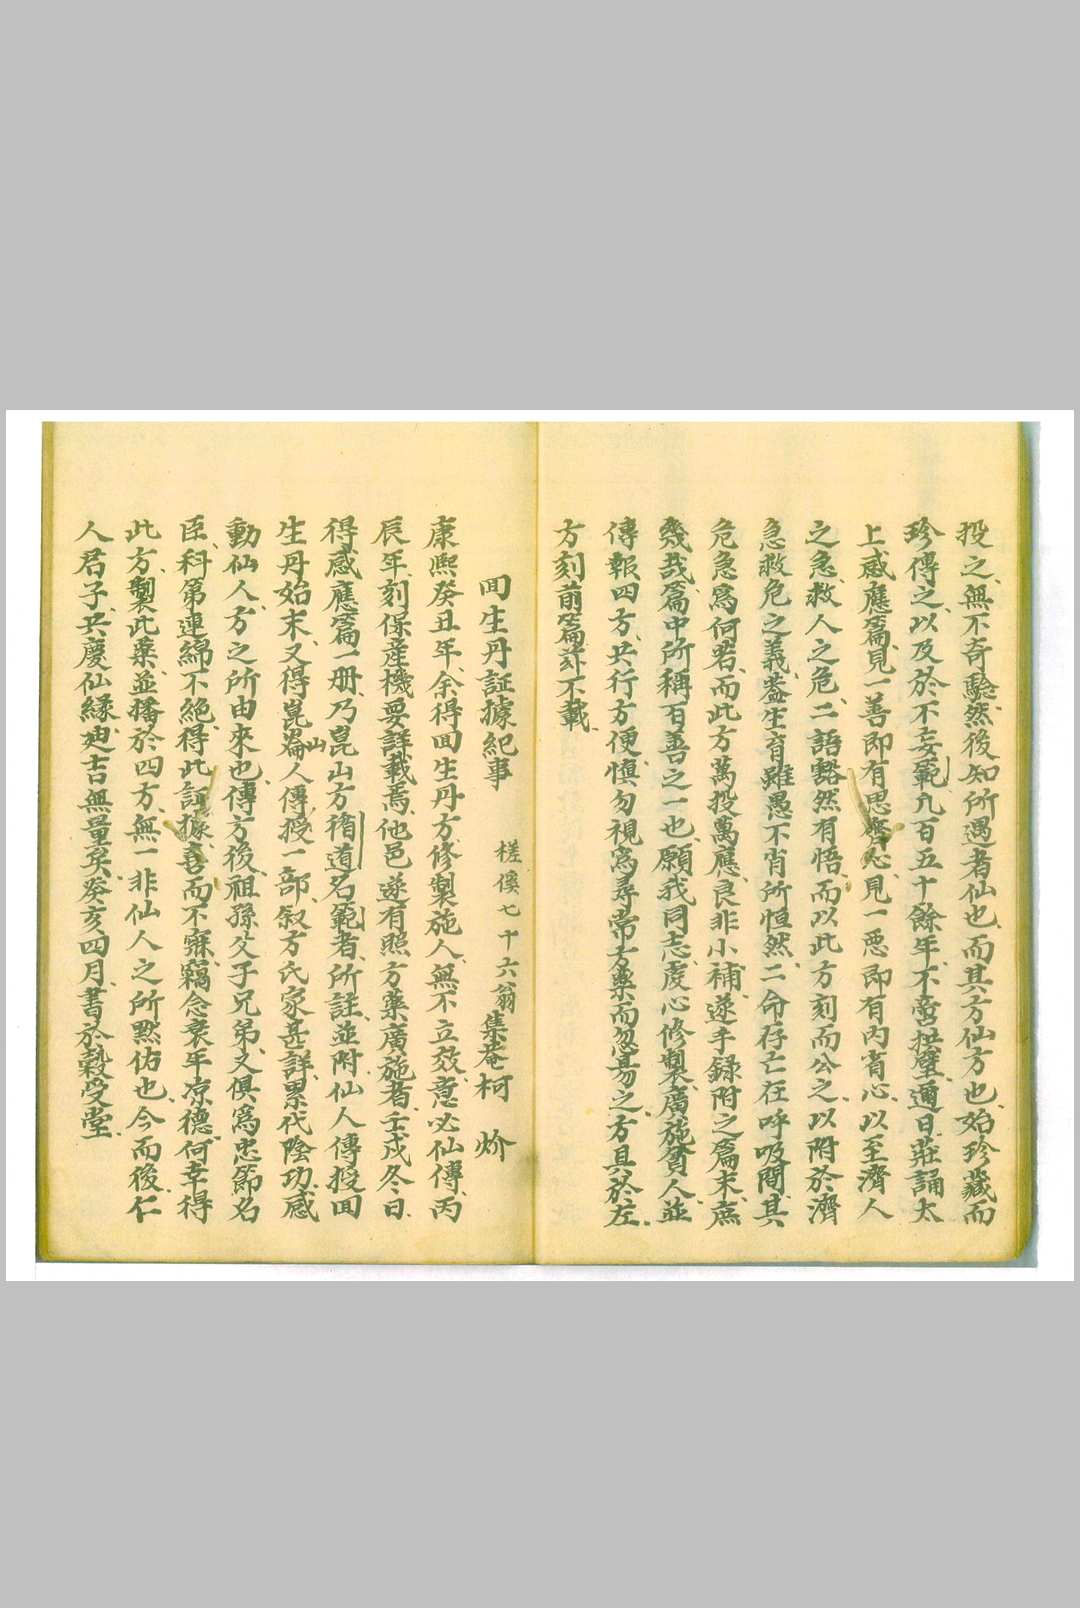 投之無不奇驗然後知所遇者仙也而其方仙方也始珍藏而
珍傳之以及於不妄範九百五十餘年不啻拱璧邇日莊誦太
上感應篇見一善即有思齊心見一惡即有內省心以至濟人
之急救人之危二語豁然有悟而以此方刻而公之以附於濟
急救危之義蓋生育雖愚不肖所恒然二命存亡在呼吸間其
危急為何若而此方萬投萬應良非小補遂手錄附之篇末庶
幾哉篇中所稱百善之一也願我同志虔心修製廣施貧人並
傳報四方共行方便慎勿視為尋常方藥而忽易之方具於左
方刻前篇茲不載
回生丹証據紀事
槎僊七十六翁集菴柯 炌
康熙癸丑年余得回生丹方修製施人無不立效意必仙傳丙
辰年刻保產機要詳載焉他邑遂有照方藥廣施者壬戌冬日
得感應篇一冊乃崑山方循道名範者所註並附仙人傳授回
生丹始末又得崑崙山人傳授一部叙方氏家甚詳累代陰功感
動仙人方之所由來也傳方後祖孫父子兄弟又俱為忠節名
臣科第連綿不絕得此証據喜而不寐竊念衰年凉德何幸得
此方製此藥並播於四方無一非仙人之所默佑也今而後仁
人君子共慶仙緣迪吉無量矣癸亥四月書於穀受堂